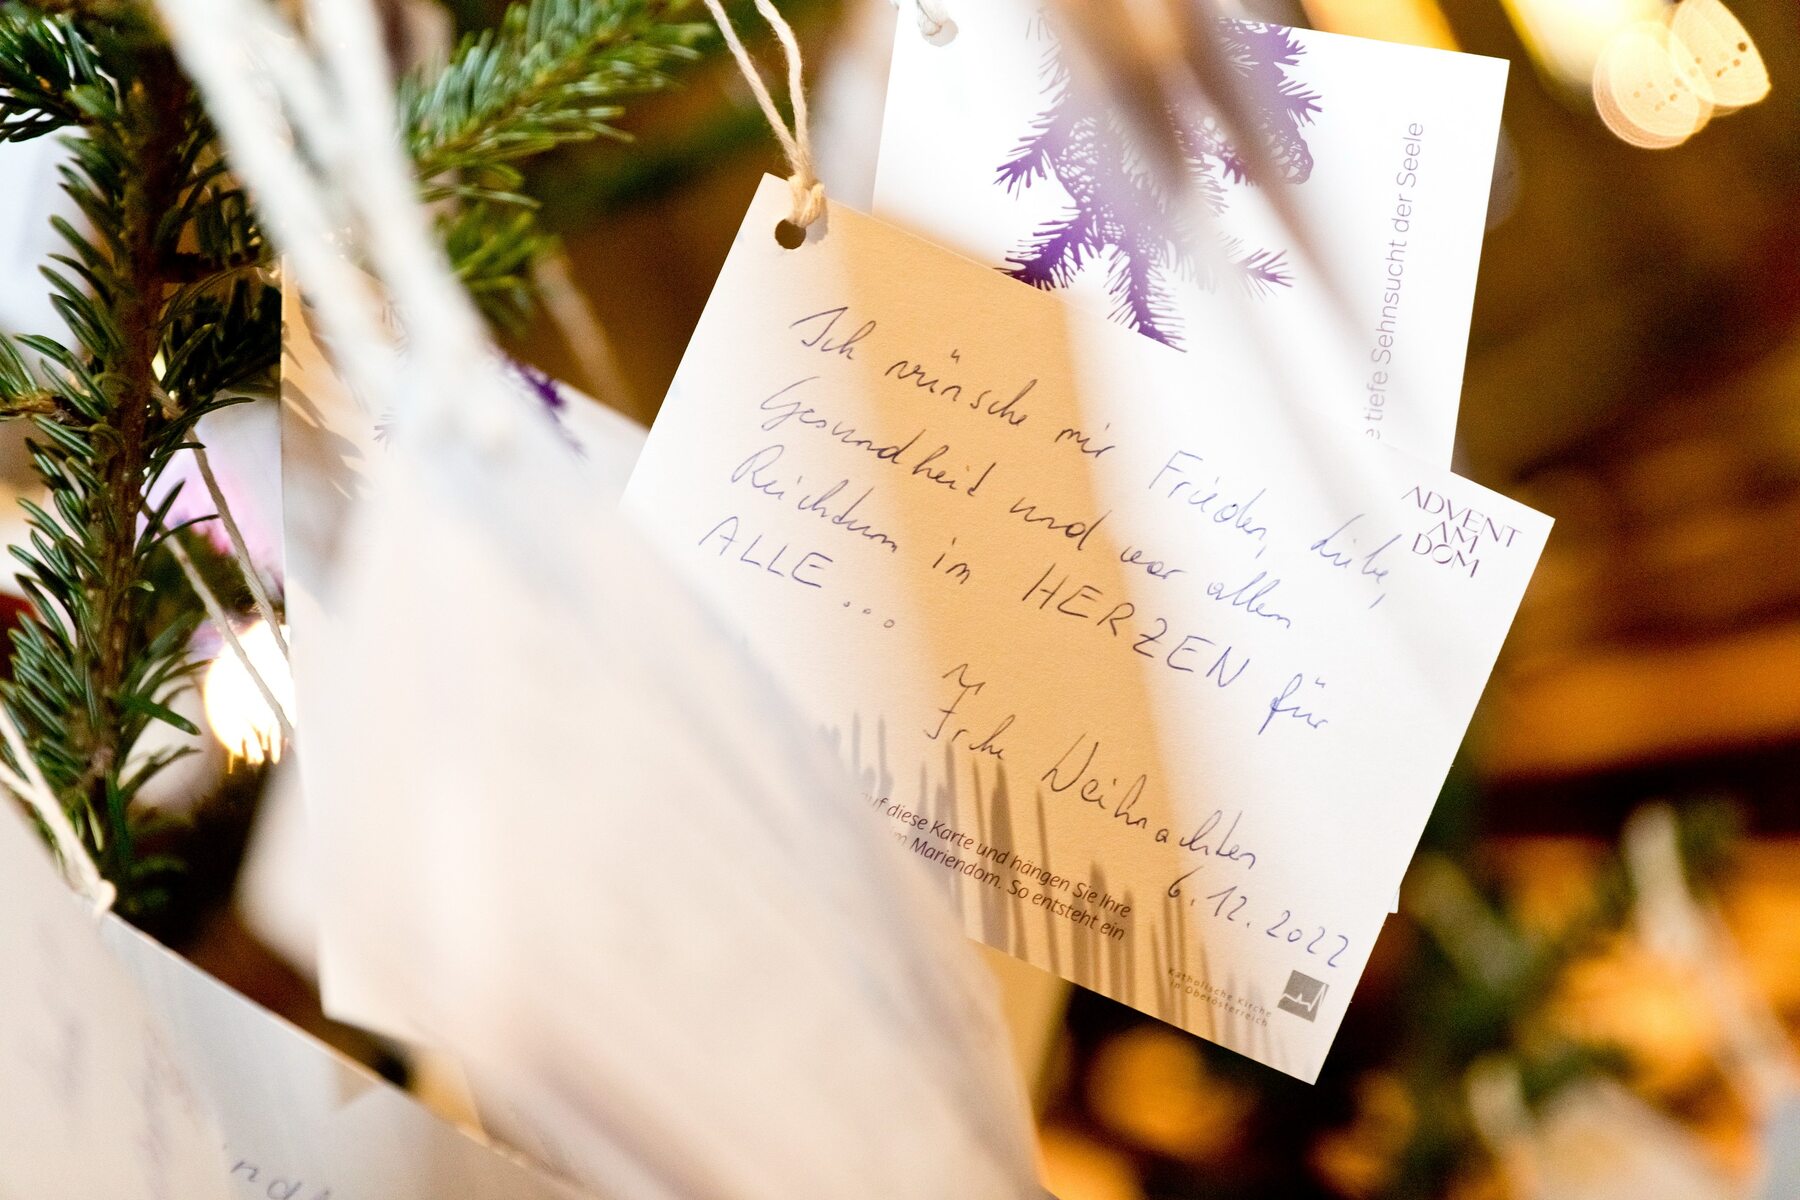 e tiefe Sehnsucht der Seele
ADVENT
AM
DOM
Ich wünsche mir Frieden, Liebe,
Gesundheit und vor allem
Reichtum im HERZEN für
ALLE ...
Weihnachten
6.12.2022
auf diese Karte und hängen Sie Ihre
im Mariendom. So entsteht ein
Katholische Kirche
in Oberösterreich